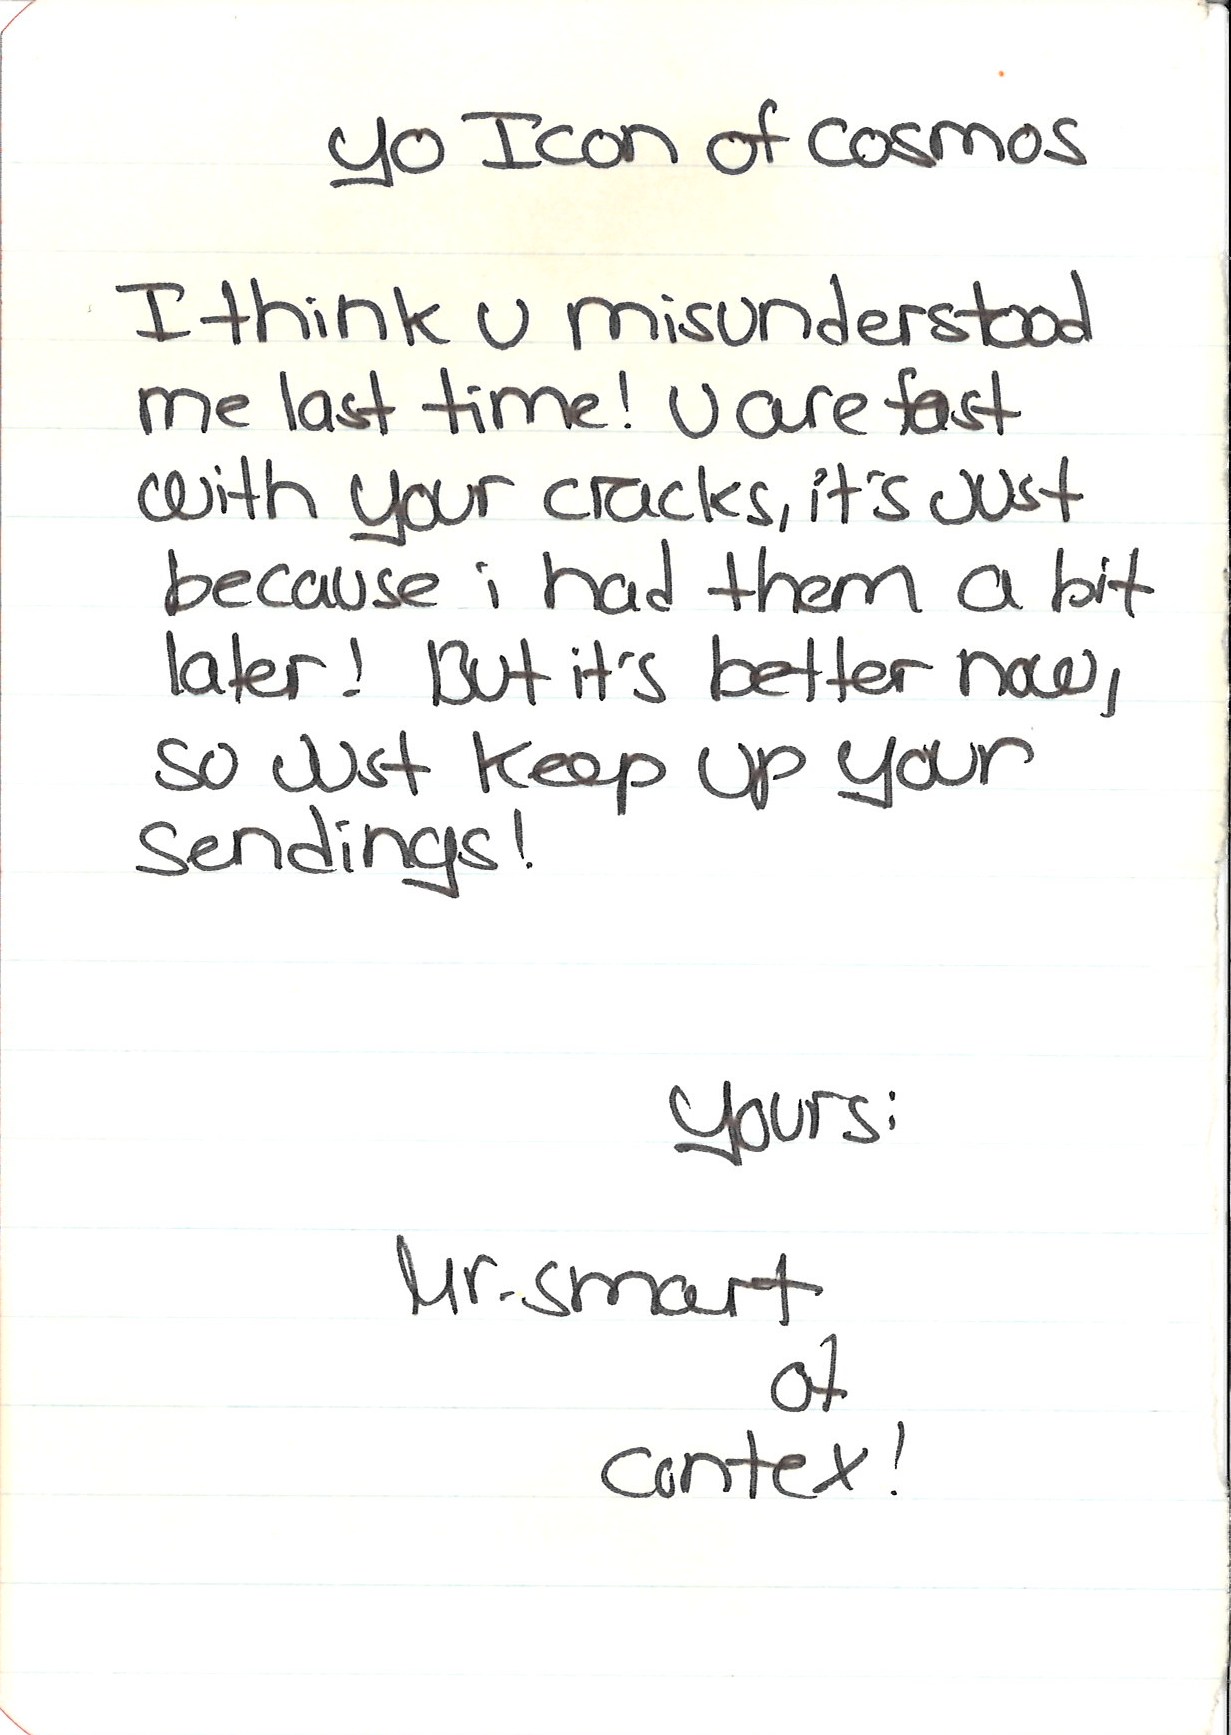 yo Icon of cosmos
I think u misunderstood
me last time! U are fast
with your cracks, it's just
because i had them a bit
later! But it's better now,
so just keep up your
sendings!
yours:
Mr. smart
of
contex!